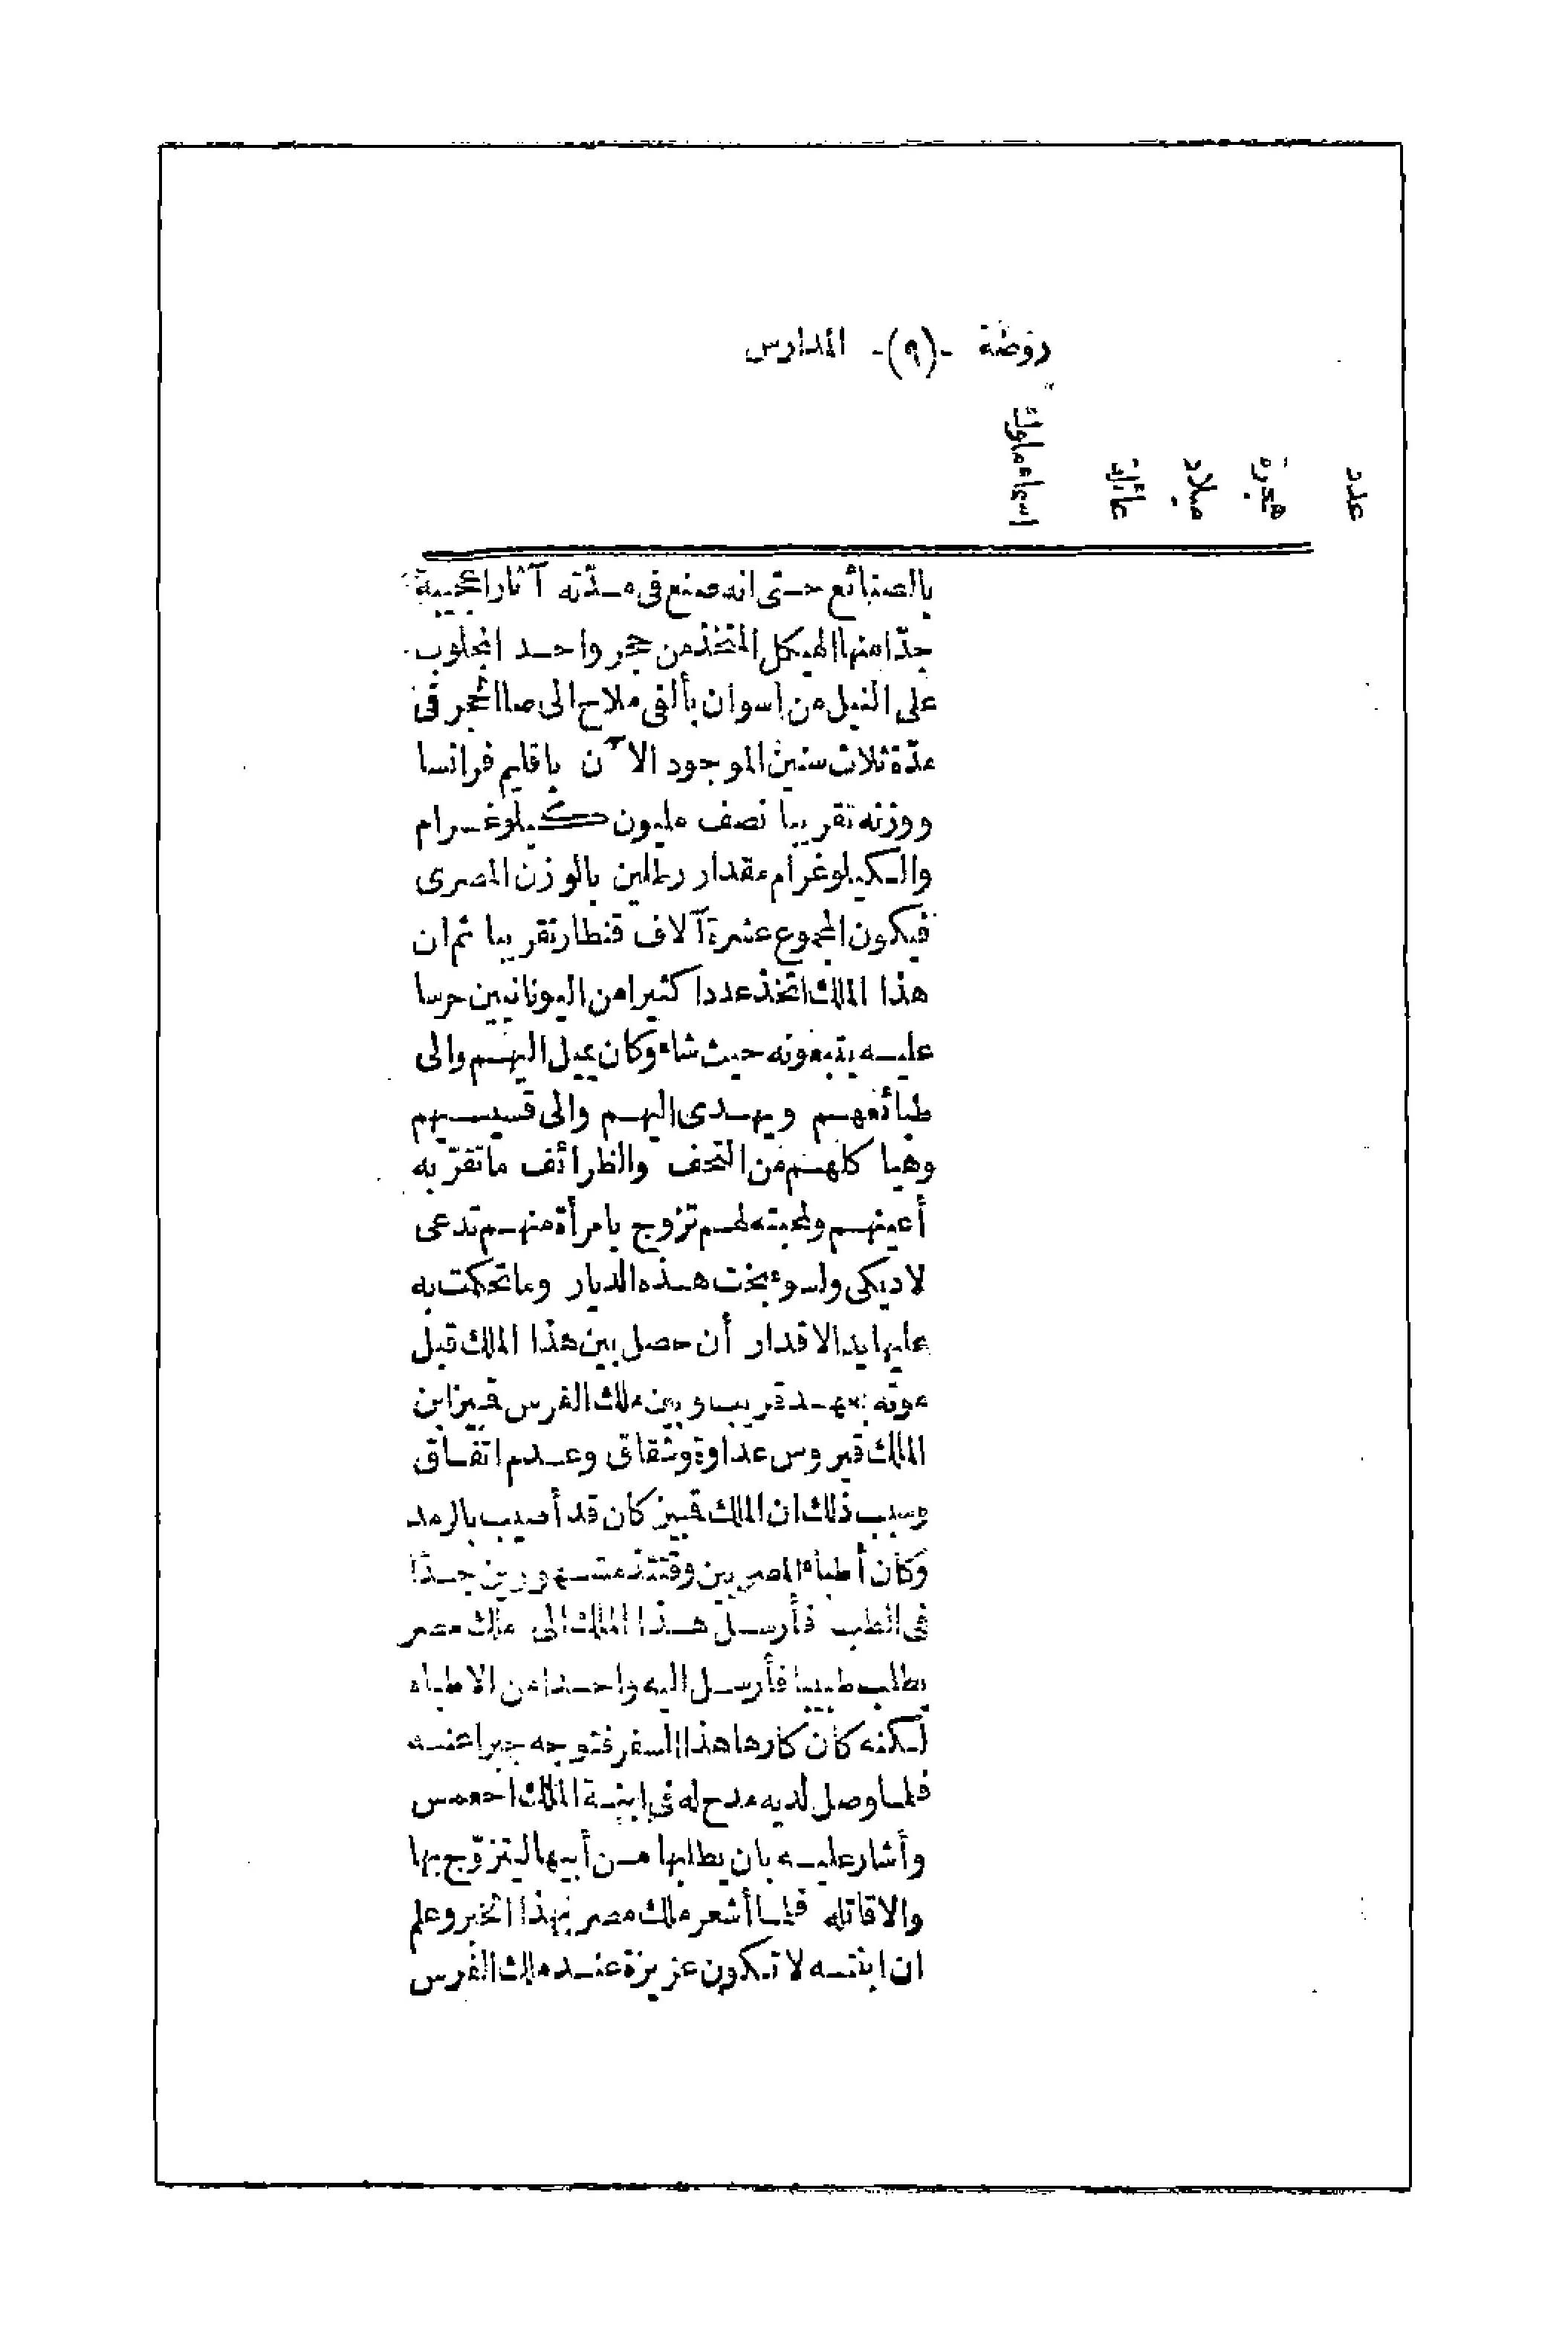 روضة -(٩)- المدارس
عدد هجرة ميلاد عائلة اسماء ملوك
بالصنائع حتى انه صنع فى مدّته آثارا عجيبة
جدّا منها الهيكل المتخذ من حجر واحد المجلوب
على النيل من اسوان بألفى ملاح الى صا الحجر فى
مدّة ثلاث سنين الموجود الآن باقليم فرانسا
ووزنه تقريبا نصف مليون كيلوغرام
والكيلوغرام مقدار رطلين بالوزن المصرى
فيكون المجموع عشرة آلاف قنطار تقريبا ثم ان
هذا الملك اتخذ عددا كثيرا من اليونانيين حرسا
عليه يتبعونه حيث شاء وكان يميل اليهم والى
طبائعهم ويهدى اليهم والى قسيسيهم
وهيا كلهم من التحف والظرائف ما تقرّ به
أعينهم ولمحبته لهم تزوج بامرأة منهم تدعى
لاديكى ولسوء بخت هذه الديار وما تحكمت به
عليها يد الاقدار أن حصل بين هذا الملك قبل
موته بعهد قريب وبين ملك الفرس قمبيز ابن
الملك قيروس عداوة وشقاق وعدم اتفاق
وسبب ذلك ان الملك قمبيز كان قد أصيب بالرمد
وكان أطباء المصريين وقتئذ مشهورين جدّا
فى الطب فأرسل هذا الملك الى ملك مصر
يطلب طبيبا فأرسل اليه واحدا من الاطباء
لكنه كان كارها هذا السفر فتوجه جبرا عنه
فلما وصل لديه مدح له فى ابنة الملك احعمس
وأشار عليه بان يطلبها من أبيها ليتزوّج بها
والا قاتله فلما أشعر ملك مصر بهذا الخبر وعلم
ان ابنته لا تكون عزيزة عند ملك الفرس